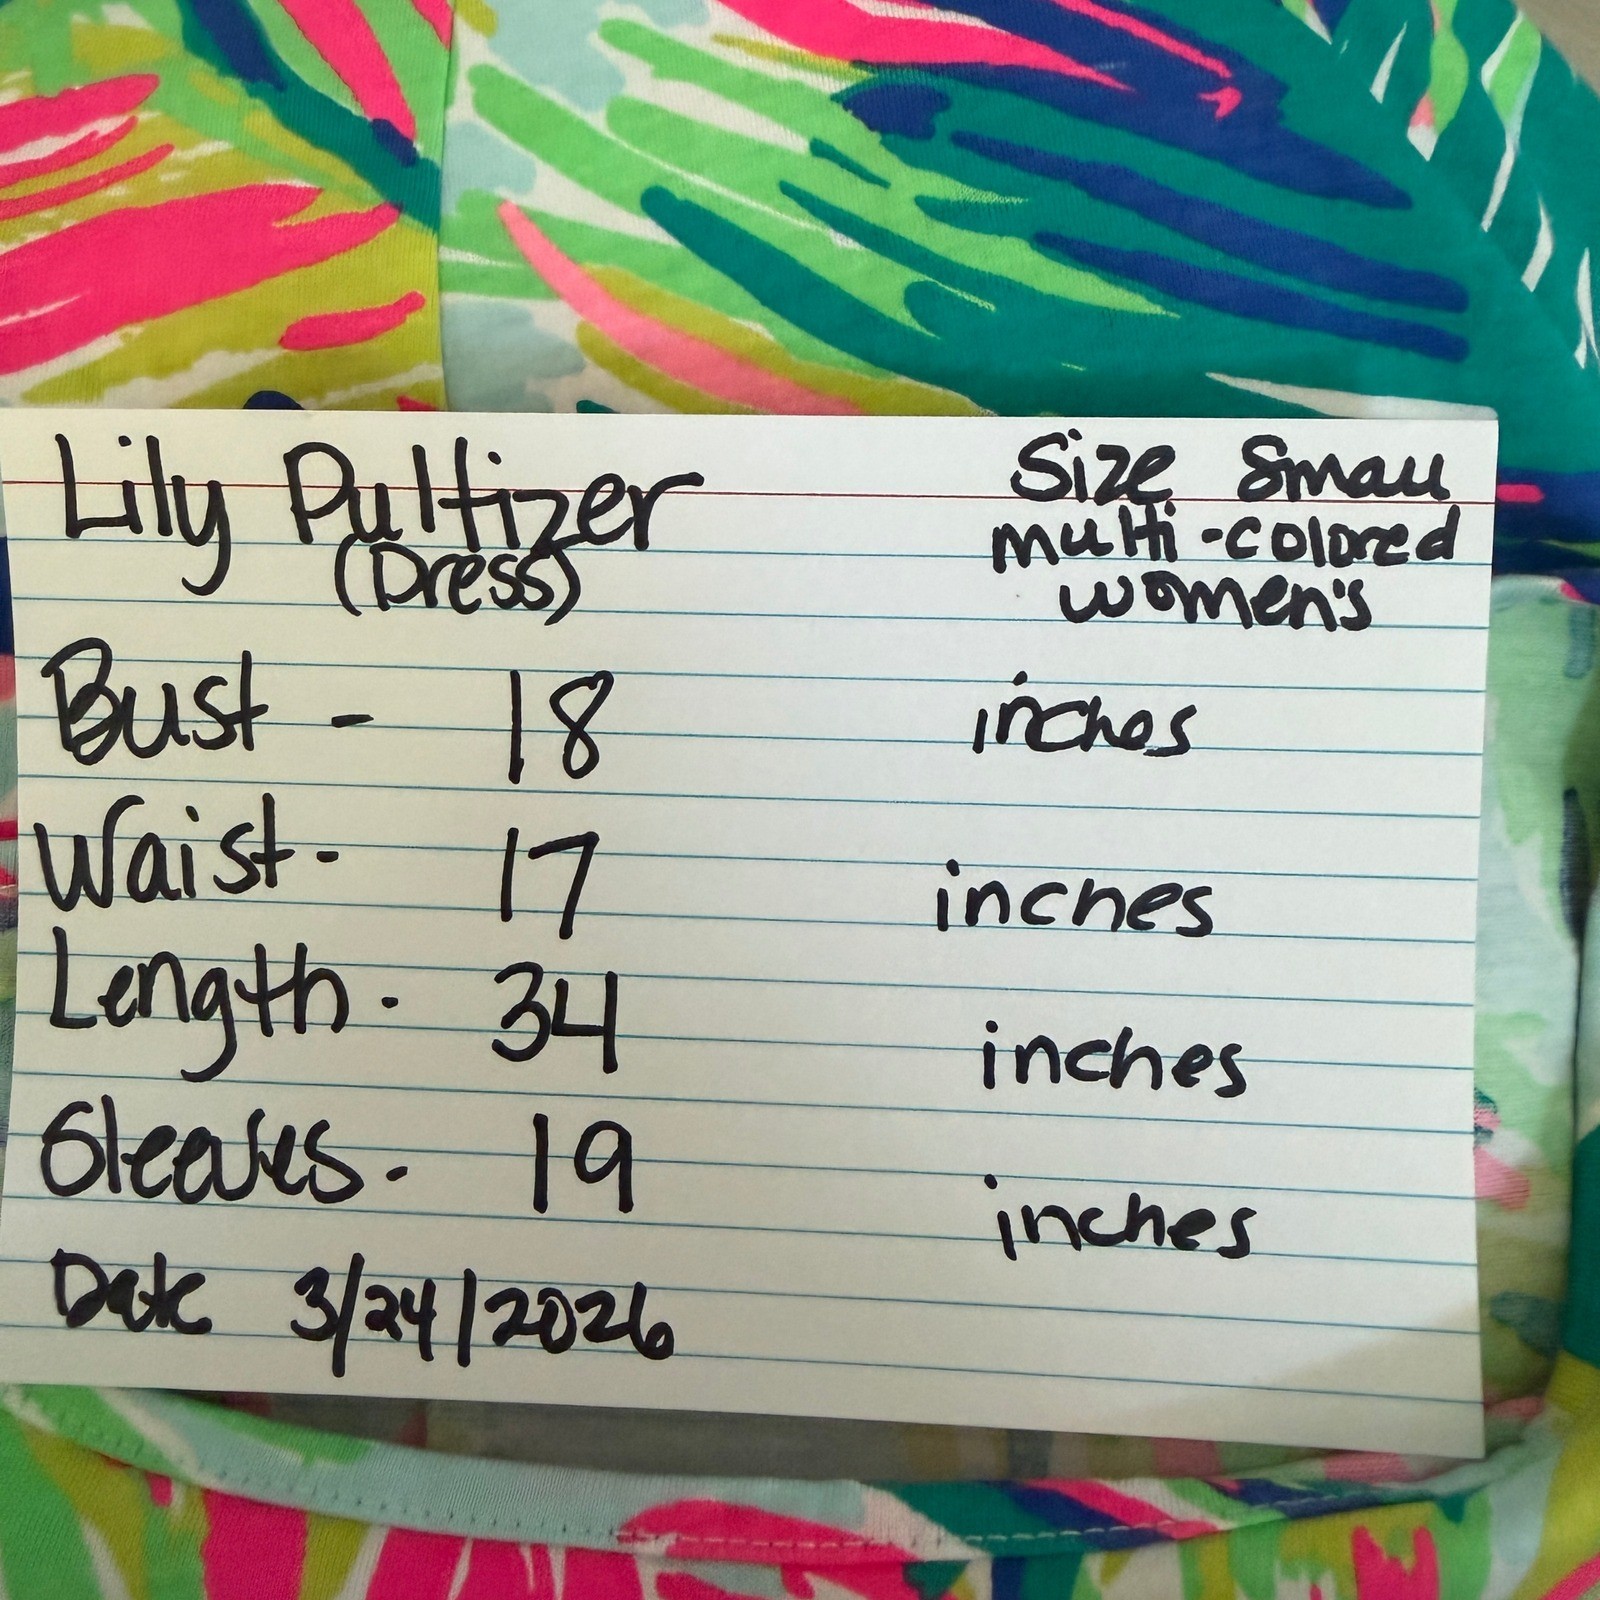 Lily Pultizer
(Dress)
Size Small
multi-colored
women's
Bust - 18 inches
Waist - 17 inches
Length - 34 inches
Sleaves - 19 inches
Date 3/24/2026